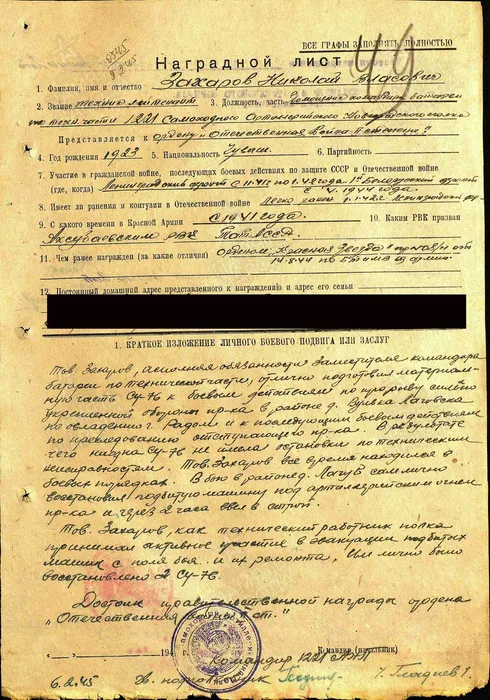 8545
9.2.45
49
ВСЕ ГРАФЫ ЗАПОЛНЯТЬ ПОЛНОСТЬЮ
Наградной лист
1. Фамилия, имя и отчество Захаров Николай Власович
2. Звание техник лейтенант 3. Должность, часть помощник ком-ра батареи
по техчасти 1221 Самоходного Артиллерийского полка
Представляется к ордену "Отечественная война II степени"
4. Год рождения 1923 5. Национальность Чуваш 6. Партийность
7. Участие в гражданской войне, последующих боевых действиях по защите СССР и Отечественной войне
(где, когда) Ленинградский фронт с 11.41г по 1.42 года 1й Белорусский фронт
с 4.1944 года.
8. Имеет ли ранения и контузии в Отечественной войне Легко ранен 1.1.42г Ленинградский фр-
9. С какого времени в Красной Армии с 1941 года. 10. Каким РВК призван
Аксубаевским РВК Тат. АССР
11. Чем ранее награжден (за какие отличия) Орденом "Красная Звезда" приказом от
14.8.44
12. Постоянный домашний адрес представляемого к награждению и адрес его семьи
1. КРАТКОЕ ИЗЛОЖЕНИЕ ЛИЧНОГО БОЕВОГО ПОДВИГА ИЛИ ЗАСЛУГ
Тов. Захаров, исполняя обязанности Заместителя командира
батареи по технической части, отлично подготовил материаль-
ную часть Су-76 к боевым действиям по прорыву сильно
укрепленной обороны пр-ка в районе д.
по овладению г. Радом и к последующим боевым действиям
по преследованию отступающего пр-ка. В результате
чего ни одна Су-76 не имела остановки по техническим
неисправностям. Тов. Захаров всё время находился в
боевых порядках. В бою в районе д. Лагув сам лично
восстановил подбитую машину под артиллерийским огнем
пр-ка и через 2 часа ввел в строй.
Тов. Захаров, как технический работник полка
принимал активное участие в эвакуации подбитых
машин с поля боя и их ремонта, Им лично было
восстановлено 2 Су-76.
Достоин правительственной награды ордена
"Отечественная война II ст."
194 г. Командир (начальник)
Командир 1221 САП
6.2.45 Гв. подполковник